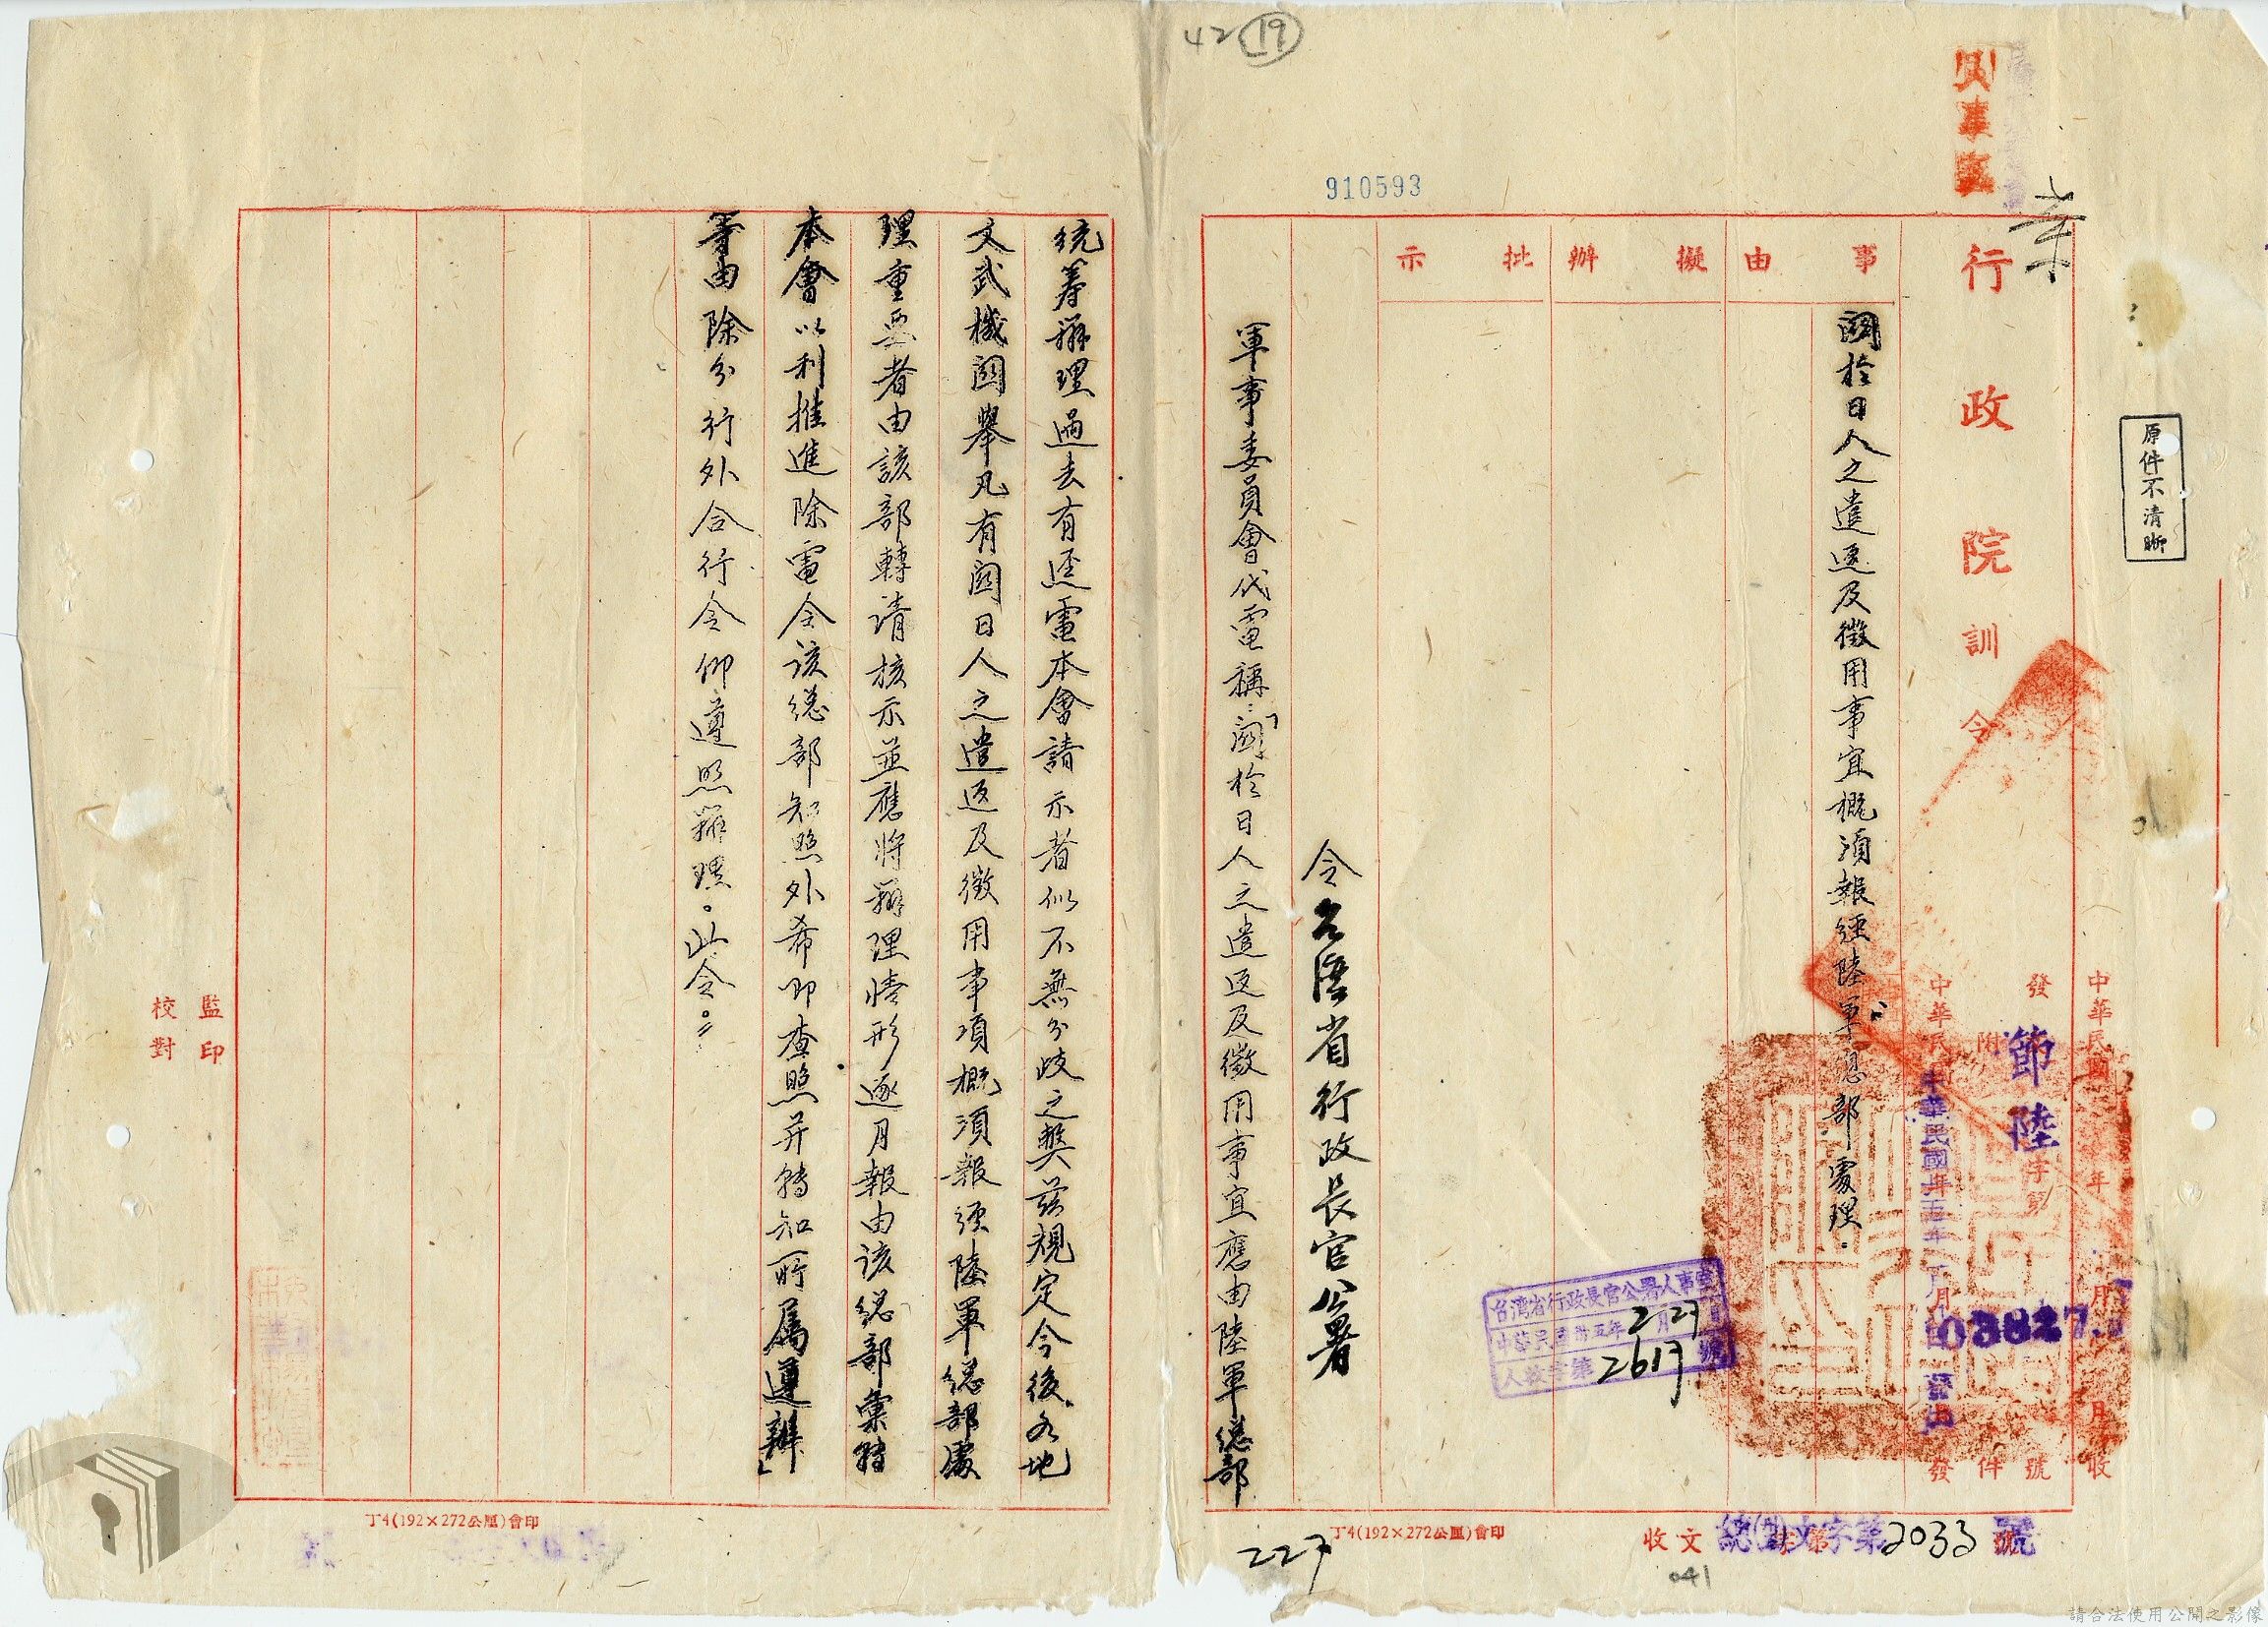 42 19
人事室
910593
原件不清晰
行政院訓令
事由
擬辦
批示
關於日人之遣返及徵用事宜概須報經陸軍總部處理。
中華民國 年 月 日收
發 節陸 字第 03827 號
附 件
中華民國卅五年 月 日發出
令台灣省行政長官公署
軍事委員會代電稱:「關於日人之遣返及徵用事宜應由陸軍總部
台灣省行政長官公署人事室
中華民國卅五年2月27日
人收字第2617號
收文 總 文字第2033號
041
227
丁4(192×272公厘)會印
統籌辦理過去有逕電本會請示者似不無分歧之弊茲規定今後各地
文武機關舉凡有關日人之遣返及徵用事項概須報經陸軍總部處
理重要者由該部轉請核示並應將辦理情形逐月報由該總部彙轉
本會以利推進除電令該總部知照外希即查照并轉知所屬遵辦」
等由除分行外合行令仰遵照辦理。此令。
監印
校對
丁4(192×272公厘)會印
請合法使用公開之影像